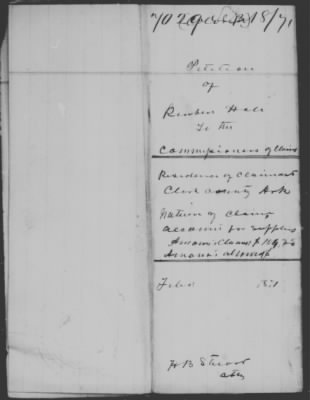 Petition
of
Reuben Hale
To the
Commissioners of Claims
Residence of Claimant
Clark County Ark
Nature of Claim
account for supplies
Amount Claimed $
Amount allowed
Filed 1871
W B Stuart
Atty